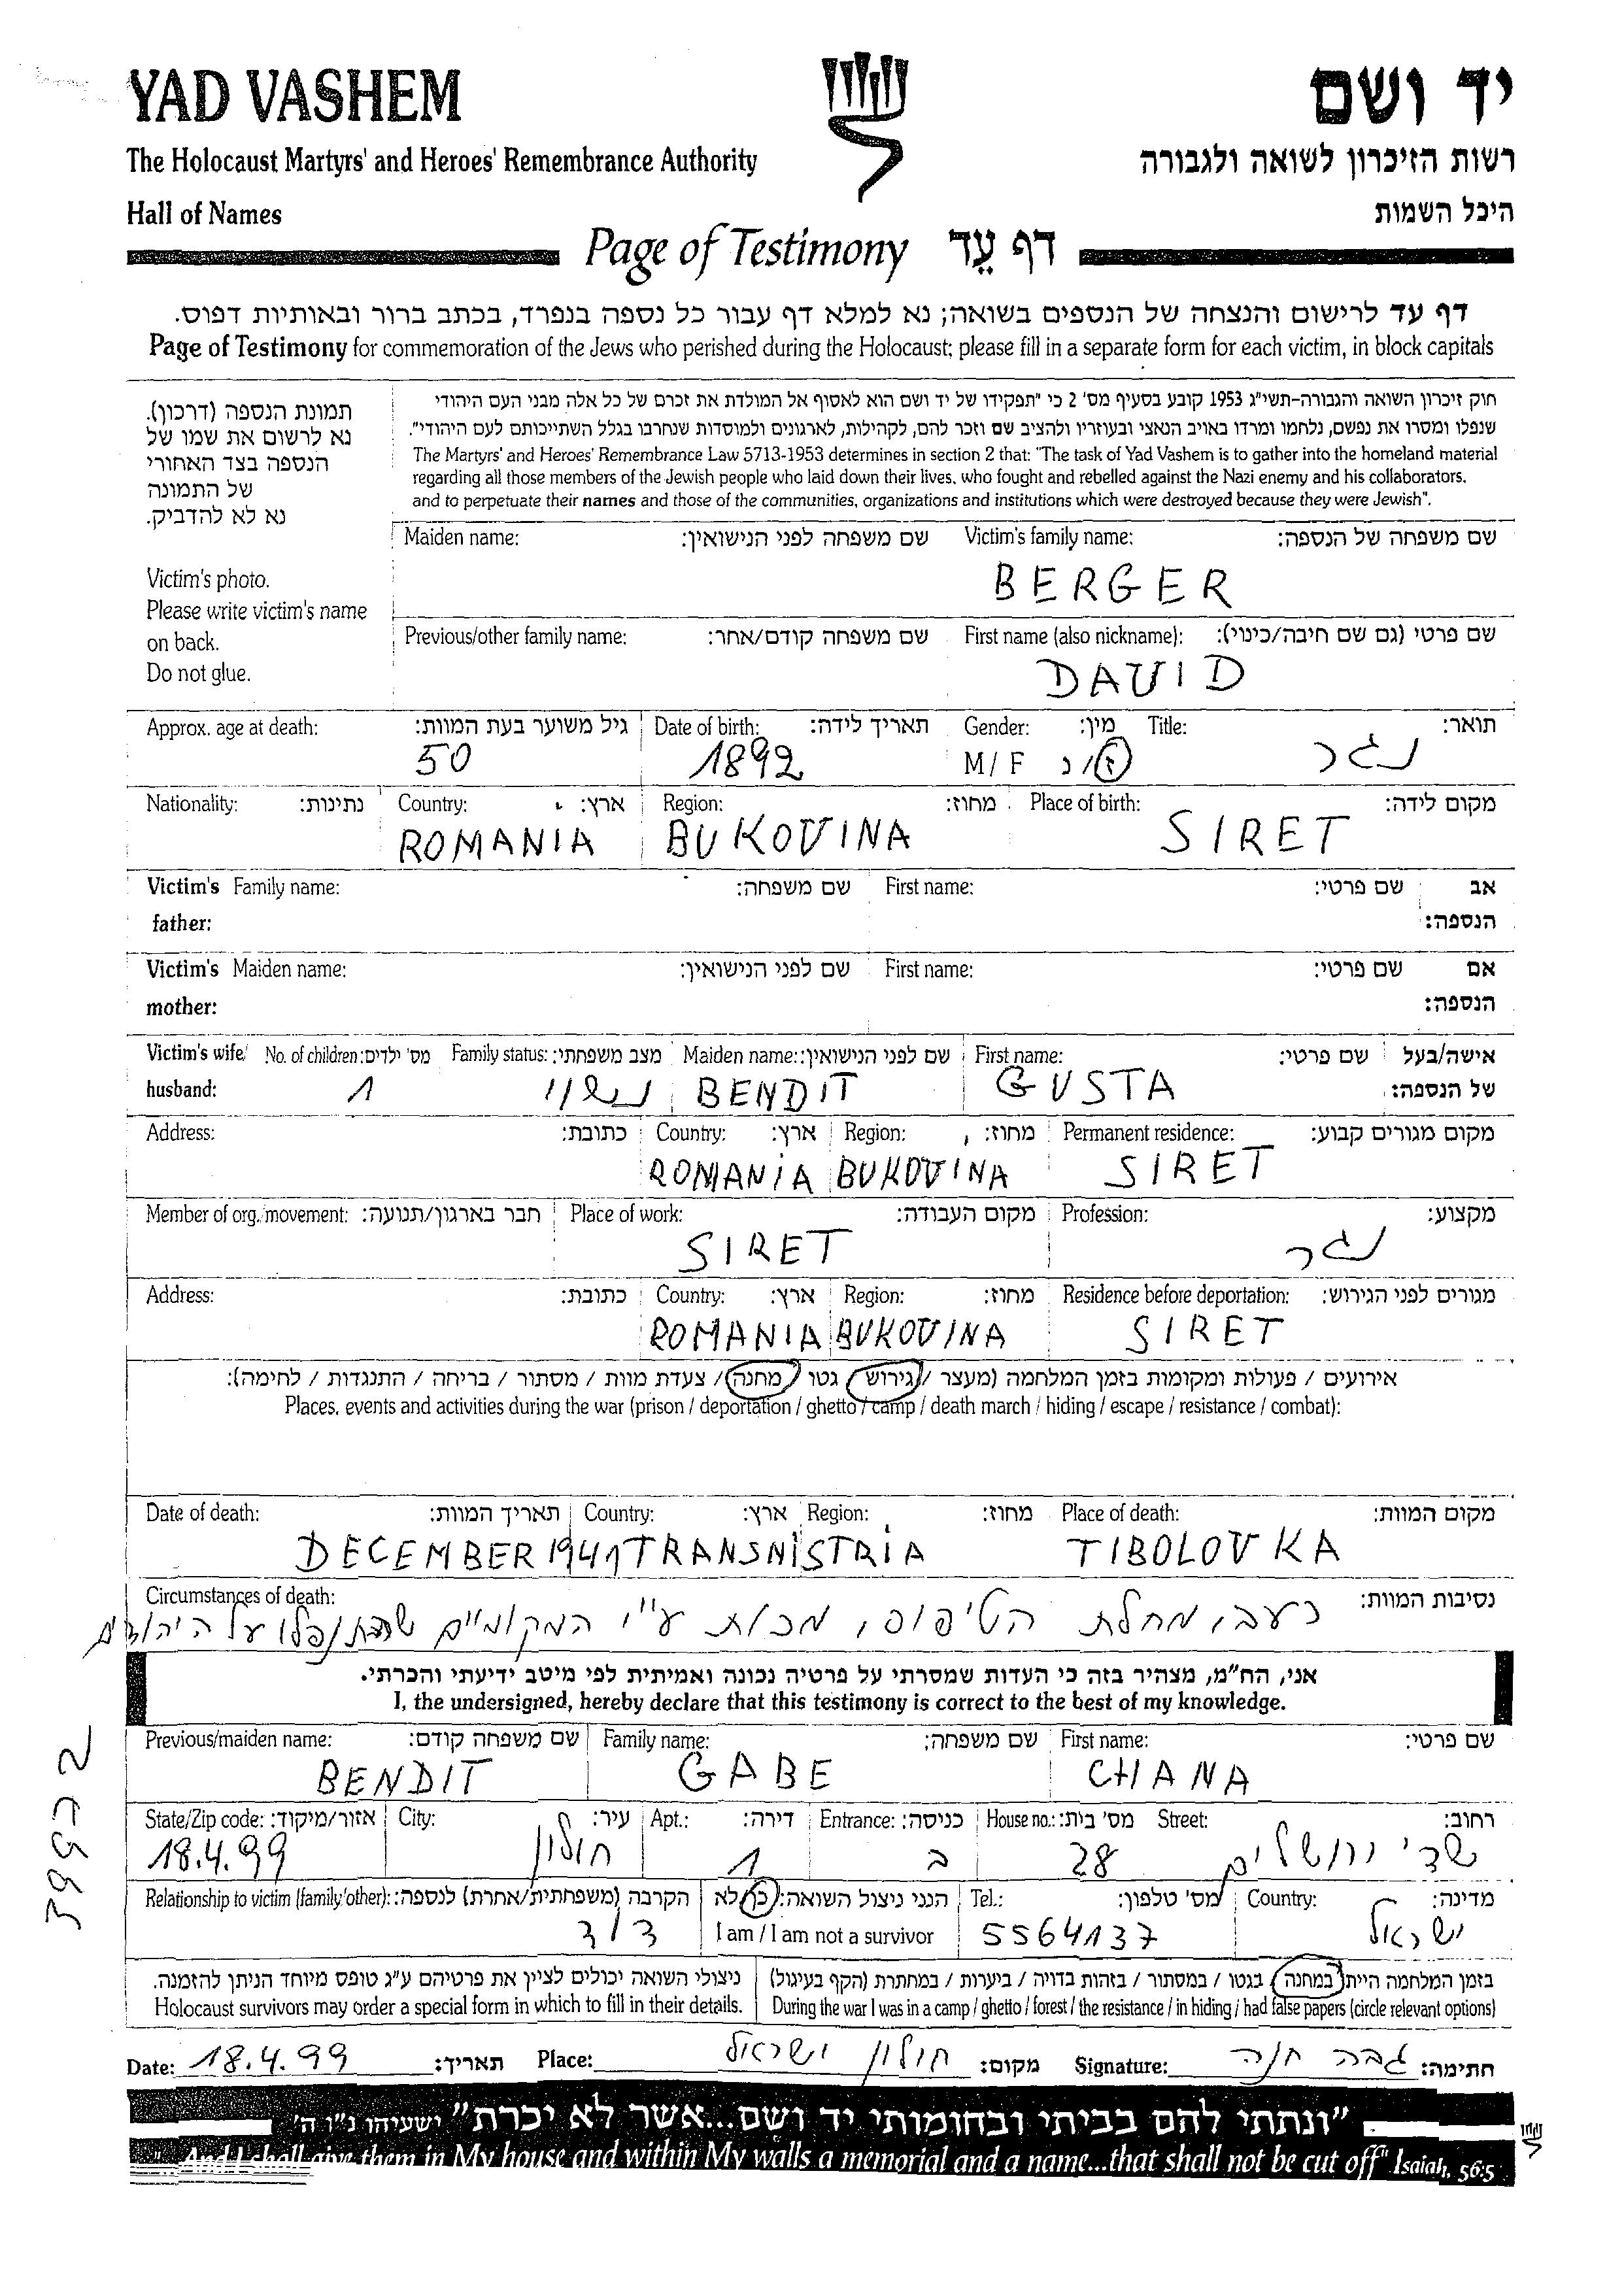 YAD VASHEM
יד ושם
The Holocaust Martyrs' and Heroes' Remembrance Authority
רשות הזיכרון לשואה ולגבורה
Hall of Names
היכל השמות
Page of Testimony דף עֵד
דף עד לרישום והנצחה של הנספים בשואה; נא למלא דף עבור כל נספה בנפרד, בכתב ברור ובאותיות דפוס.
Page of Testimony for commemoration of the Jews who perished during the Holocaust; please fill in a separate form for each victim, in block capitals
תמונת הנספה (דרכון).
נא לרשום את שמו של
הנספה בצד האחורי
של התמונה
נא לא להדביק.
Victim's photo.
Please write victim's name
on back.
Do not glue.
חוק זיכרון השואה והגבורה-תשי"ג 1953 קובע בסעיף מס' 2 כי "תפקידו של יד ושם הוא לאסוף אל המולדת את זכרם של כל אלה מבני העם היהודי
שנפלו ומסרו את נפשם, נלחמו ומרדו באויב הנאצי ובעוזריו ולהציב שם וזכר להם, לקהילות, לארגונים ולמוסדות שנחרבו בגלל השתייכותם לעם היהודי".
The Martyrs' and Heroes' Remembrance Law 5713-1953 determines in section 2 that: "The task of Yad Vashem is to gather into the homeland material
regarding all those members of the Jewish people who laid down their lives, who fought and rebelled against the Nazi enemy and his collaborators,
and to perpetuate their names and those of the communities, organizations and institutions which were destroyed because they were Jewish".
Maiden name: שם משפחה לפני הנישואין: Victim's family name: שם משפחה של הנספה:
BERGER
Previous/other family name: שם משפחה קודם/אחר: First name (also nickname): שם פרטי (גם שם חיבה/כינוי):
DAVID
Approx. age at death: גיל משוער בעת המוות: Date of birth: תאריך לידה: Gender: מין: Title: תואר:
50 1892 M/F ז/נ נגר
Nationality: נתינות: Country: ארץ: Region: מחוז: Place of birth: מקום לידה:
ROMANIA BUKOVINA SIRET
Victim's Family name: שם משפחה: First name: שם פרטי: אב
father: הנספה:
Victim's Maiden name: שם לפני הנישואין: First name: שם פרטי: אם
mother: הנספה:
Victim's wife/ No. of children: מס' ילדים: Family status: מצב משפחתי: Maiden name: שם לפני הנישואין: First name: שם פרטי: אישה/בעל
husband: 1 נשוי BENDIT GUSTA של הנספה:
Address: כתובת: Country: ארץ: Region: מחוז: Permanent residence: מקום מגורים קבוע:
ROMANIA BUKOVINA SIRET
Member of org./movement: חבר בארגון/תנועה: Place of work: מקום העבודה: Profession: מקצוע:
SIRET נגר
Address: כתובת: Country: ארץ: Region: מחוז: Residence before deportation: מגורים לפני הגירוש:
ROMANIA BUKOVINA SIRET
אירועים / פעולות ומקומות בזמן המלחמה (מעצר / גירוש / גטו / מחנה / צעדת מוות / מסתור / בריחה / התנגדות / לחימה):
Places, events and activities during the war (prison / deportation / ghetto / camp / death march / hiding / escape / resistance / combat):
Date of death: תאריך המוות: Country: ארץ: Region: מחוז: Place of death: מקום המוות:
DECEMBER 1941 TRANSNISTRIA TIBOLOVKA
Circumstances of death: נסיבות המוות:
רעב, מחלת הטיפוס, מכות ע"י המקומיים נפלו על היהודים
אני, הח"מ, מצהיר בזה כי העדות שמסרתי על פרטיה נכונה ואמיתית לפי מיטב ידיעתי והכרתי.
I, the undersigned, hereby declare that this testimony is correct to the best of my knowledge.
Previous/maiden name: שם משפחה קודם: Family name: שם משפחה: First name: שם פרטי:
BENDIT GABE CHANA
State/Zip code: אזור/מיקוד: City: עיר: Apt.: דירה: Entrance: כניסה: House no.: מס' בית: Street: רחוב:
18.4.99 חולון 1 ב 28 שד' ירושלים
Relationship to victim (family/other): הקרבה (משפחתית/אחרת) לנספה: הנני ניצול השואה: כן/לא Tel.: מס' טלפון: Country: מדינה:
דוד I am / I am not a survivor 5564137 ישראל
ניצולי השואה יכולים לציין את פרטיהם ע"ג טופס מיוחד הניתן להזמנה. בזמן המלחמה הייתי במחנה / בגטו / במסתור / בזהות בדויה / ביערות / במחתרת (הקף בעיגול)
Holocaust survivors may order a special form in which to fill in their details. During the war I was in a camp / ghetto / forest / the resistance / in hiding / had false papers (circle relevant options)
Date: 18.4.99 תאריך: Place: חולון ישראל מקום: Signature: גבה חנה חתימה:
"ונתתי להם בביתי ובחומותי יד ושם...אשר לא יכרת" ישעיהו נ"ו ה'
"...And I shall give them in My house and within My walls a memorial and a name...that shall not be cut off" Isaiah, 56:5